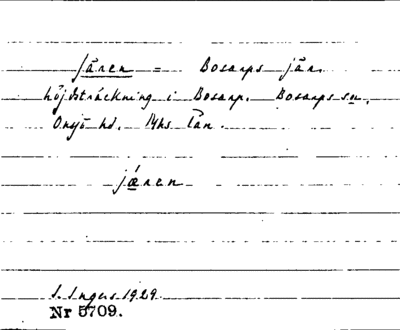 Jären = Bosarps jär.
höjdsträckning i Bosarp. Bosarps sn.
Onsjö hd. Mhs län.
jǽren
I. Ingers 1929.
Nr 5709.